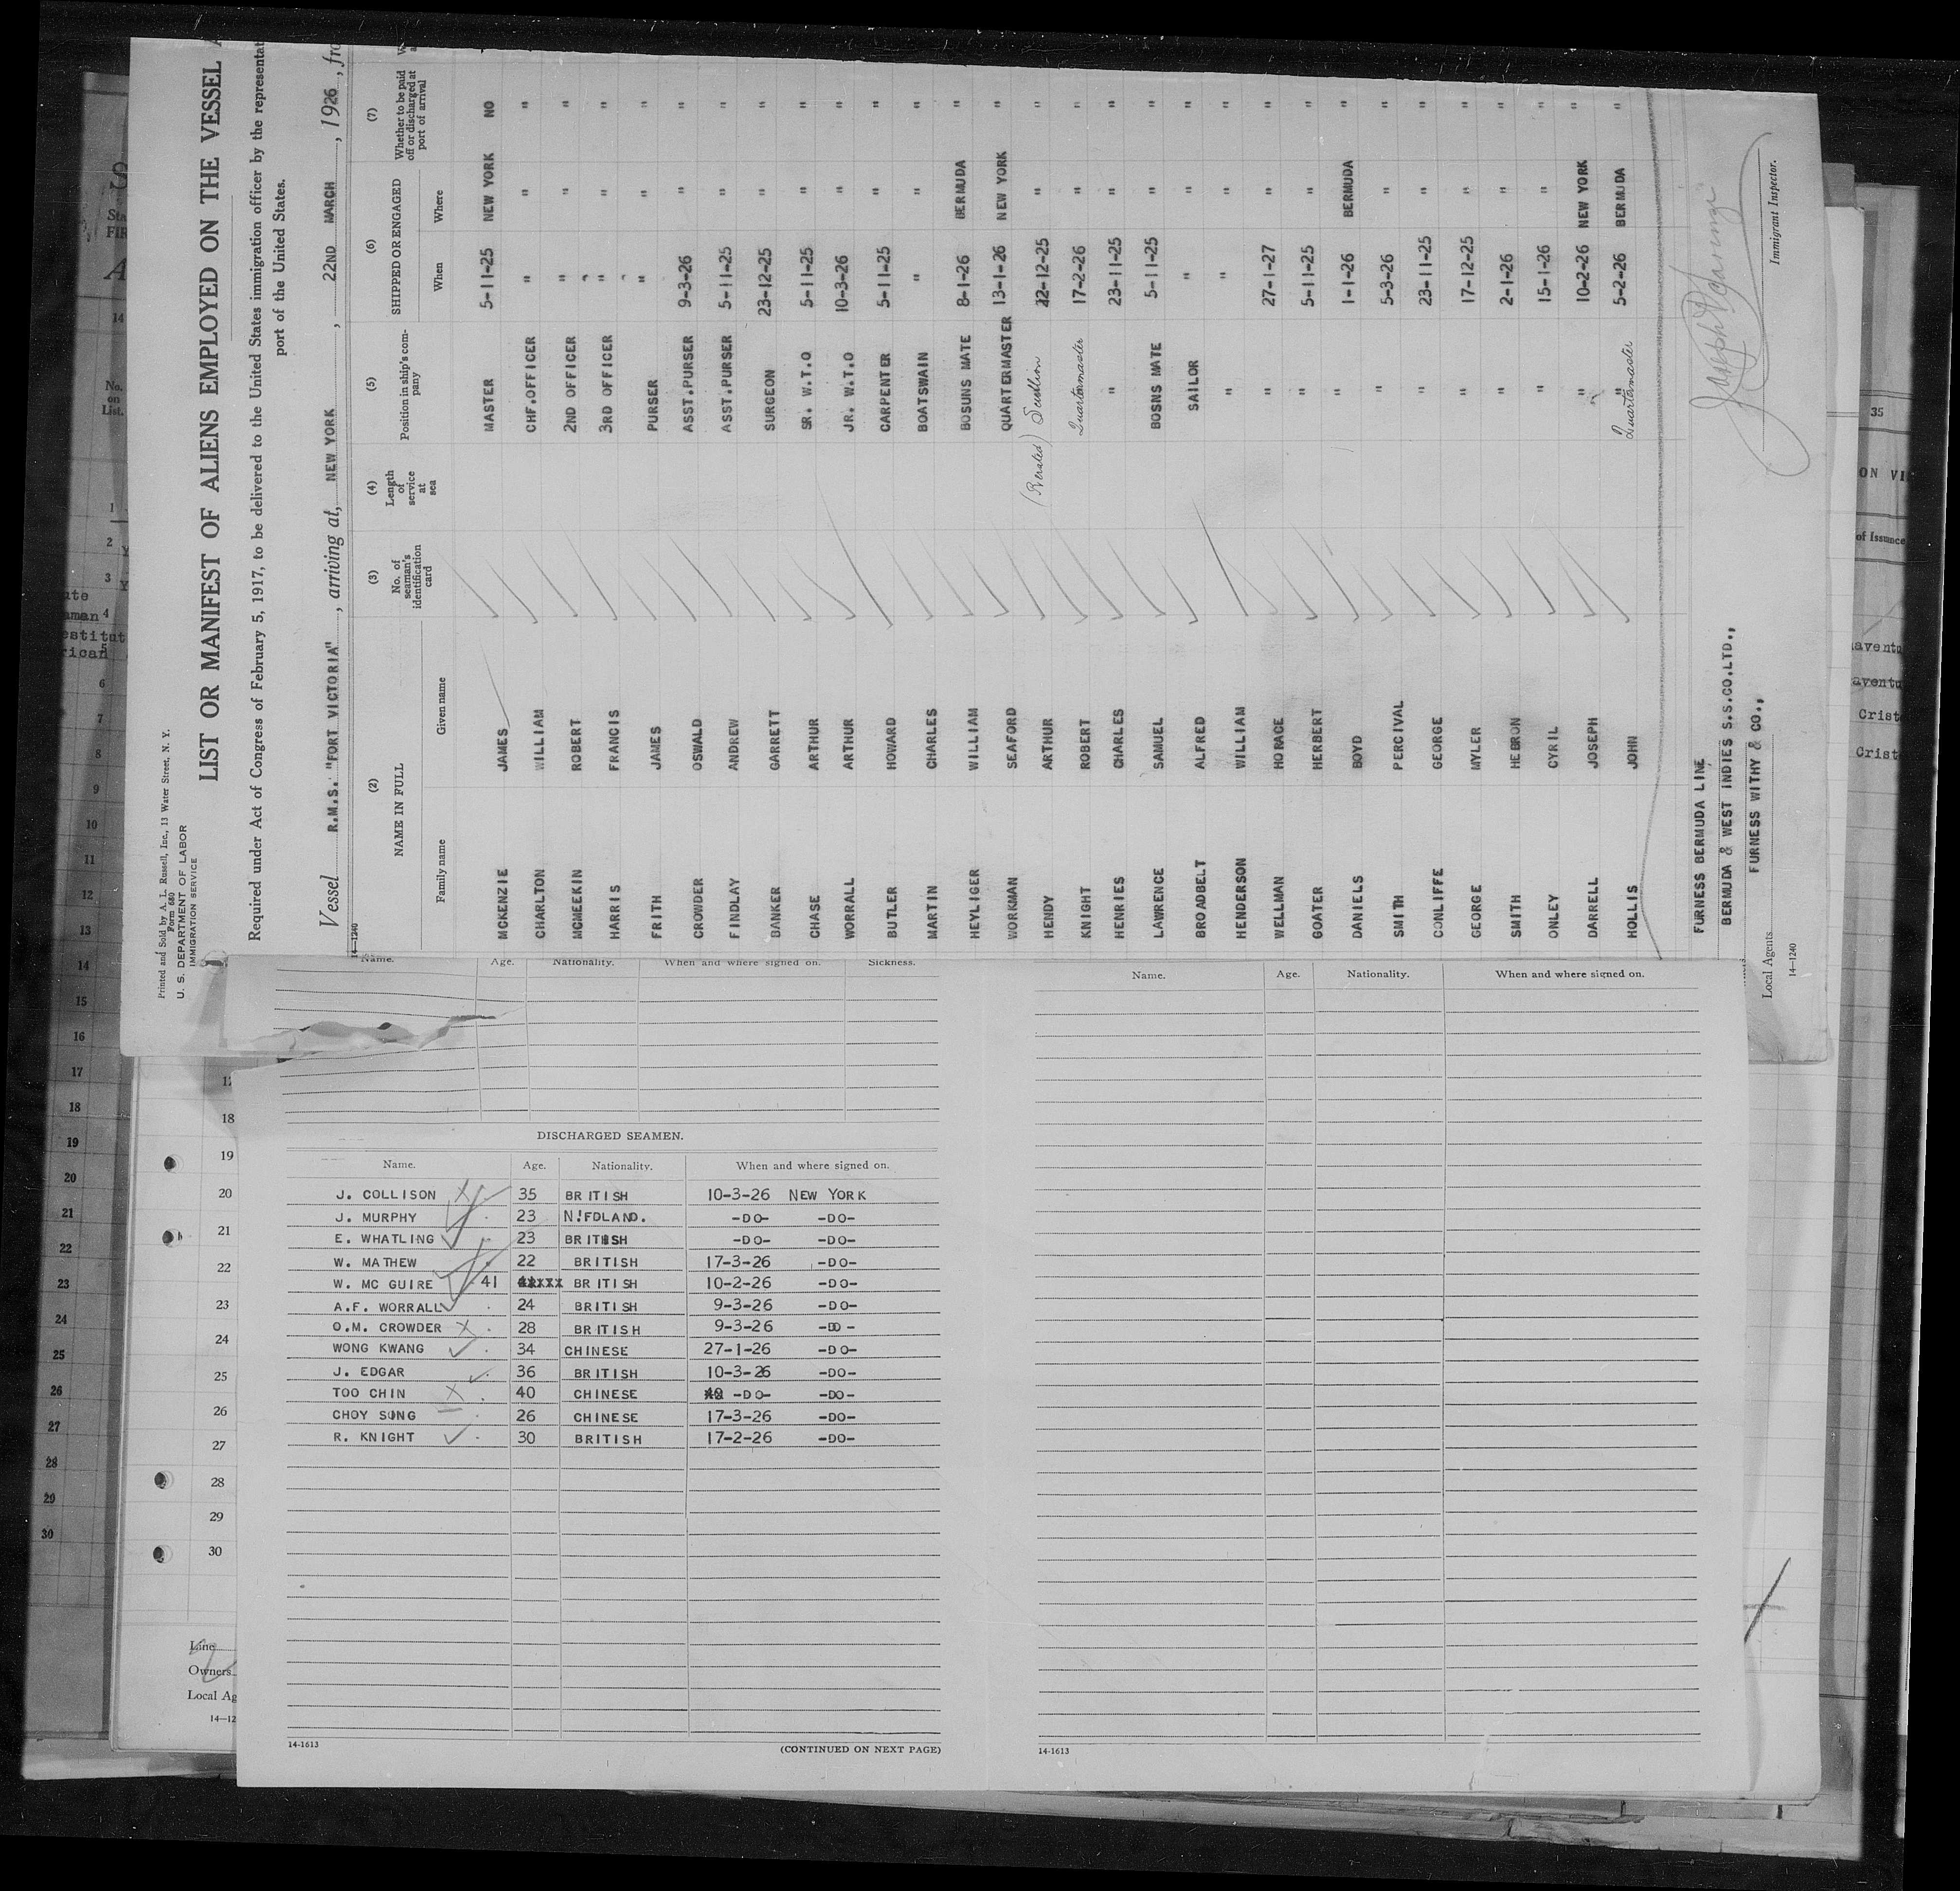 Printed and Sold by A. L. Russell, Inc., 13 Water Street, N. Y.
Form 680
U. S. DEPARTMENT OF LABOR
IMMIGRATION SERVICE
LIST OR MANIFEST OF ALIENS EMPLOYED ON THE VESSEL
Required under Act of Congress of February 5, 1917, to be delivered to the United States immigration officer by the
port of the United States.
Vessel R.M.S. "FORT VICTORIA", arriving at, NEW YORK, 22ND MARCH, 1926,
14—1240
(2) (3) (4) (5) (6) (7)
NAME IN FULL No. of seaman's identification card Length of service at sea Position in ship's company SHIPPED OR ENGAGED Whether to be paid off or discharged at port of arrival
Family name Given name When Where
MCKENZIE JAMES MASTER 5-11-25 NEW YORK NO
CHARLTON WILLIAM CHF.OFFICER " " "
MCMEEKIN ROBERT 2ND OFFICER " " "
HARRIS FRANCIS 3RD OFFICER " " "
FRITH JAMES PURSER " " "
CROWDER OSWALD ASST.PURSER 9-3-26 " "
FINDLAY ANDREW ASST.PURSER 5-11-25 " "
BANKER GARRETT SURGEON 23-12-25 " "
CHASE ARTHUR SR. W.T.O 5-11-25 " "
WORRALL ARTHUR JR. W.T.O 10-3-26 " "
BUTLER HOWARD CARPENTER 5-11-25 " "
MARTIN CHARLES BOATSWAIN " " "
HEYLIGER WILLIAM BOSUNS MATE 8-1-26 BERMUDA "
WORKMAN SEAFORD QUARTERMASTER 13-1-26 NEW YORK "
HENDY ARTHUR (Rerated) Scullion 22-12-25 " "
KNIGHT ROBERT Quartermaster 17-2-26 " "
HENRIES CHARLES " 23-11-25 " "
LAWRENCE SAMUEL BOSNS MATE 5-11-25 " "
BROADBELT ALFRED SAILOR " " "
HENDERSON WILLIAM " " " "
WELLMAN HORACE " 27-1-27 " "
GOATER HERBERT " 5-11-25 " "
DANIELS BOYD " 1-1-26 BERMUDA "
SMITH PERCIVAL " 5-3-26 " "
CONLIFFE GEORGE " 23-11-25 " "
GEORGE MYLER " 17-12-25 " "
SMITH HEBRON " 2-1-26 " "
ONLEY CYRIL " 15-1-26 " "
DARRELL JOSEPH " 10-2-26 NEW YORK "
HOLLIS JOHN " Quartermaster 5-2-26 BERMUDA "
FURNESS BERMUDA LINE
BERMUDA & WEST INDIES S.S.CO.LTD.,
FURNESS WITHY & CO.,
Local Agents
14—1240
Immigrant Inspector.
Name. Age. Nationality. When and where signed on. Sickness.
DISCHARGED SEAMEN.
Name. Age. Nationality. When and where signed on.
J. COLLISON 35 BRITISH 10-3-26 NEW YORK
J. MURPHY 23 N'FDLAND. -DO- -DO-
E. WHATLING 23 BRITISH -DO- -DO-
W. MATHEW 22 BRITISH 17-3-26 -DO-
W. MC GUIRE 41 BRITISH 10-2-26 -DO-
A.F. WORRALL 24 BRITISH 9-3-26 -DO-
O.M. CROWDER 28 BRITISH 9-3-26 -DO-
WONG KWANG 34 CHINESE 27-1-26 -DO-
J. EDGAR 36 BRITISH 10-3-26 -DO-
TOO CHIN 40 CHINESE -DO- -DO-
CHOY SUNG 26 CHINESE 17-3-26 -DO-
R. KNIGHT 30 BRITISH 17-2-26 -DO-
14-1613
(CONTINUED ON NEXT PAGE)
Name. Age. Nationality. When and where signed on.
14-1613
No. on List.
1
2
3
4
5
6
7
8
9
10
11
12
13
14
15
16
17
18
19
20
21
22
23
24
25
26
27
28
29
30
18
19
20
21
22
23
24
25
26
27
28
29
30
Line
Owners
35
of Issuance